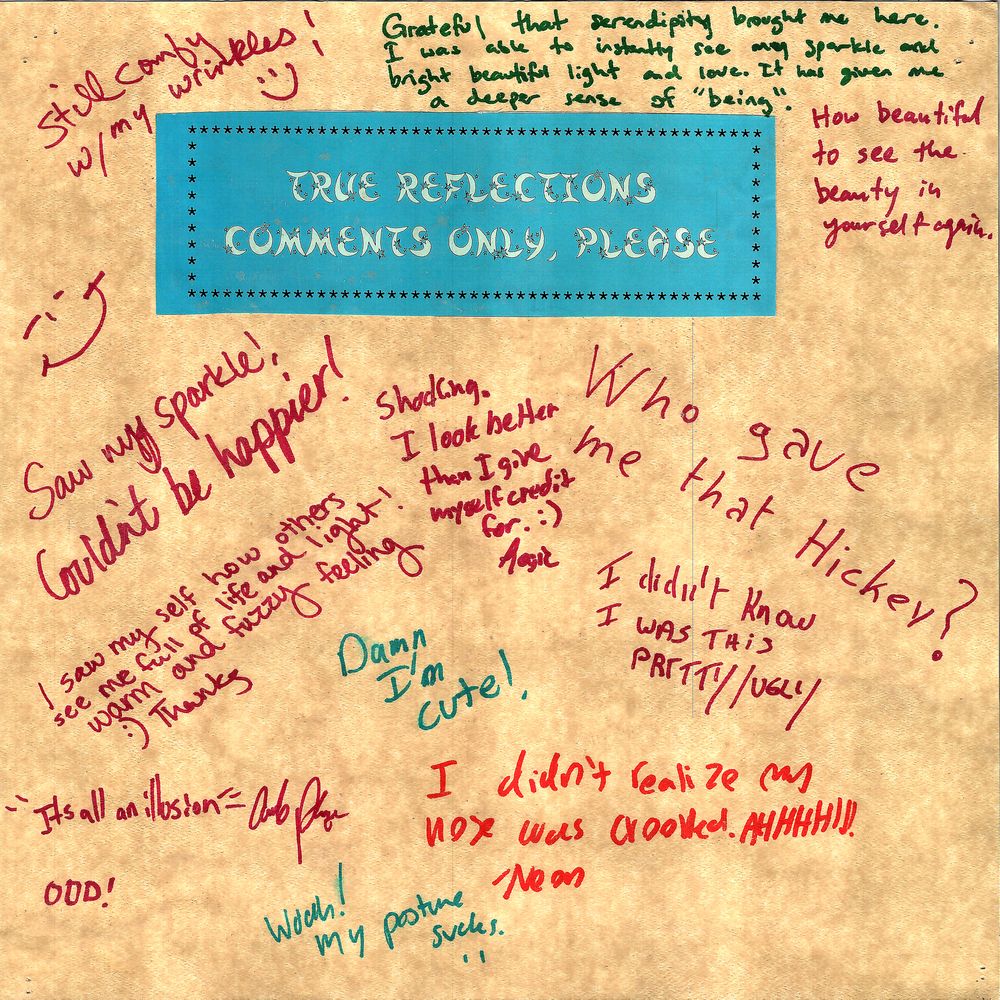 Still comfy
w/my wrinkles!
:)
Grateful that serendipity brought me here.
I was able to instantly see my sparkle and
bright beautiful light and love. It has given me
a deeper sense of "being".
How beautiful
to see the
beauty in
yourself again.
TRUE REFLECTIONS
COMMENTS ONLY, PLEASE
Saw my sparkle!
Couldn't be happier!
Shocking.
I look better
then I give
myself credit
for. :)
Who gave
me that Hickey?
I saw my self how others
see me full of life and light!
warm and fuzzy feeling
:) Thanks
I didn't know
I WAS THIS
Damn
I'm
cute!
"Its all an illusion"
I didn't realize my
was crooked. AHHHH!!!
-Neon
ODD!
Woah!
my posture
sucks.